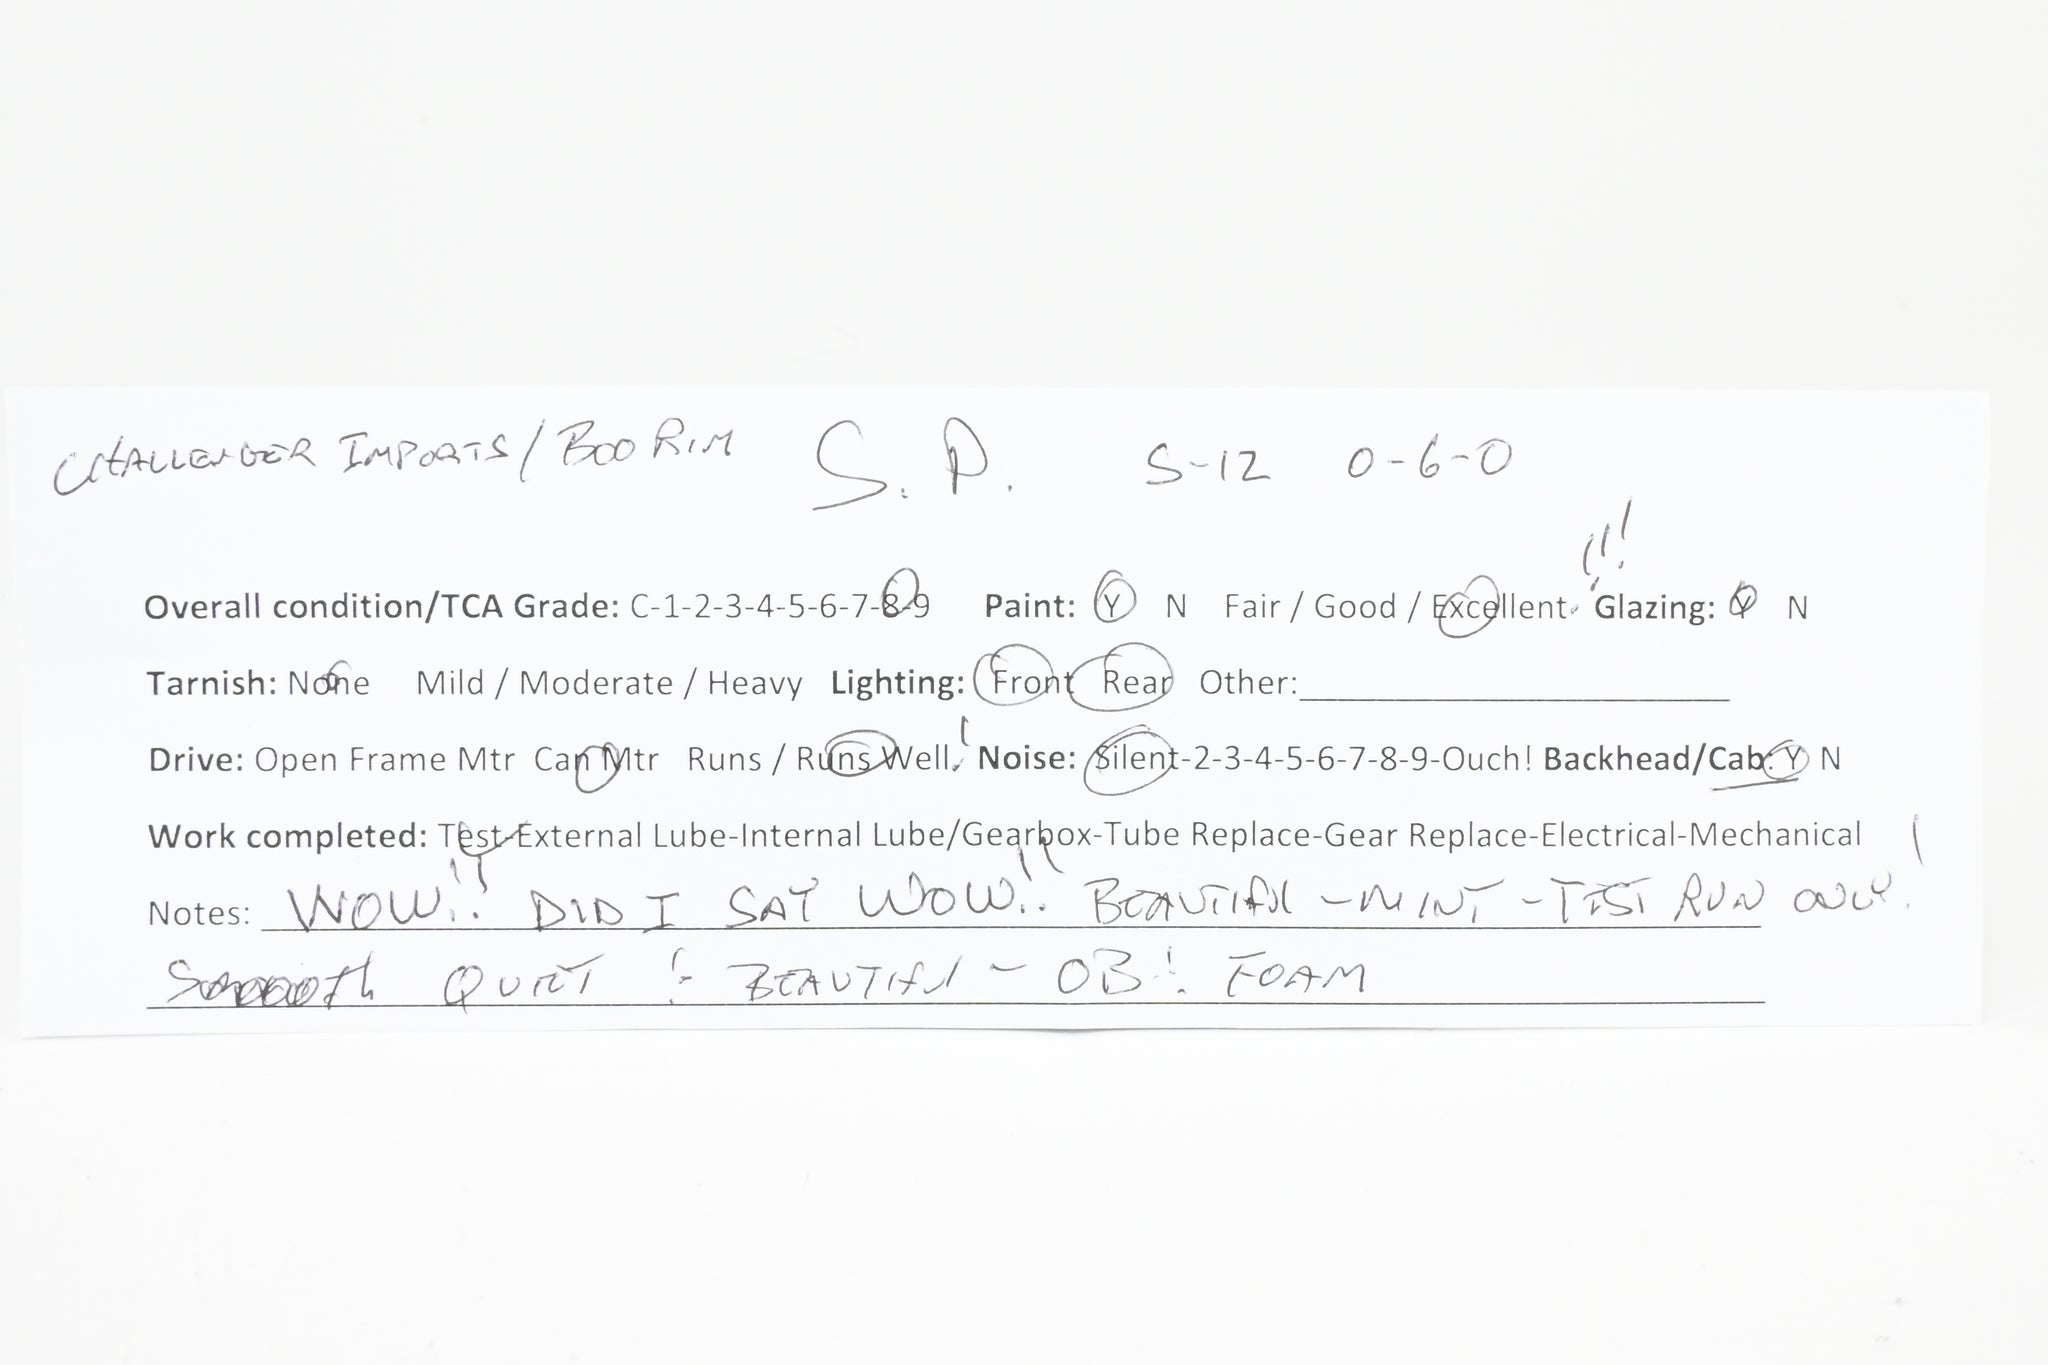 CHALLENGER IMPORTS/BOO RIM S.P. S-12 0-6-0
!!!
Overall condition/TCA Grade: C-1-2-3-4-5-6-7-8-9 Paint: Y N Fair / Good / Excellent Glazing: Y N
Tarnish: None Mild / Moderate / Heavy Lighting: Front Rear Other:
Drive: Open Frame Mtr Can Mtr Runs / Runs Well! Noise: Silent-2-3-4-5-6-7-8-9-Ouch! Backhead/Cab: Y N
Work completed: Test-External Lube-Internal Lube/Gearbox-Tube Replace-Gear Replace-Electrical-Mechanical
Notes: WOW!! DID I SAY WOW!! BEAUTIFUL - MINT - TEST RUN ONLY!
Smooooth QUIET! BEAUTIFUL - OB! FOAM